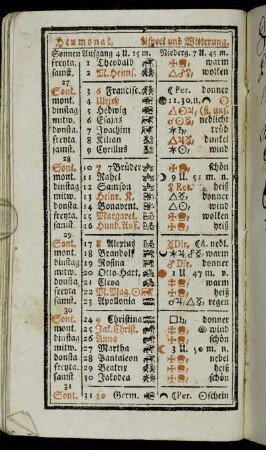 Heumonat. Aspect und Witterung.
Sonnen Aufgang 4 U. 15 m. Niederg. 7 U. 45 m.
freyta. 1 Theobald warm
samst. 2 M. Heims. wolken
27
Sont. 3 6 Francisc. Per. donner
mont. 4 Ulrich 11.30.n.
dinstag 5 Hedwig
mitw. 6 Esajas neblicht
donsta 7 Joachim trüb
freyta 8 Kilian dunkel
samst 9 Cyrillus wind
28
Sont. 10 7 7Brüder schön
mont. 11 Rahel 9 U. 51 m. n.
dinstag 12 Samson Ret. heiß
mitw. 13 Heinr. K. donner
donsta 14 Bonavent. wind
freyta. 15 Margaret. wolken
samst 16 Hund. Anf. heiß
29
Sont. 17 8 Alexius Dir. nebl.
mont. 18 Brandolf warm
dinstag 19 Rosina Dir. donner
mitw. 20 Otto. Hart. 1 U 47 m. n.
donsta 21 Cleva warm
freyta 22 M. Mag. heiß
samst 23 Apollonia regen
30
Sont. 24 9 Christina donner
mont. 25 Jak. Christ. wind
dinstag 26 Anna schön
mitw. 27 Martha 3 U. 50 m. n.
donsta 28 Pantaleon nebel
freyta 29 Beatrix heiß
samst 30 Jakobea schön
31
Sont. 31 10 Germ. Per. schein